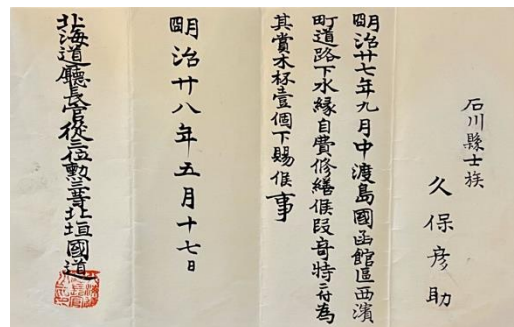 石川縣士族
久保彦助
明治廿七年九月中渡島國函館區西濱
町道路下水緣自費修繕候段奇特ニ付為
其賞木杯壹個下賜候事
明治廿八年五月十七日
北海道廳長官從三位勲三等北垣國道